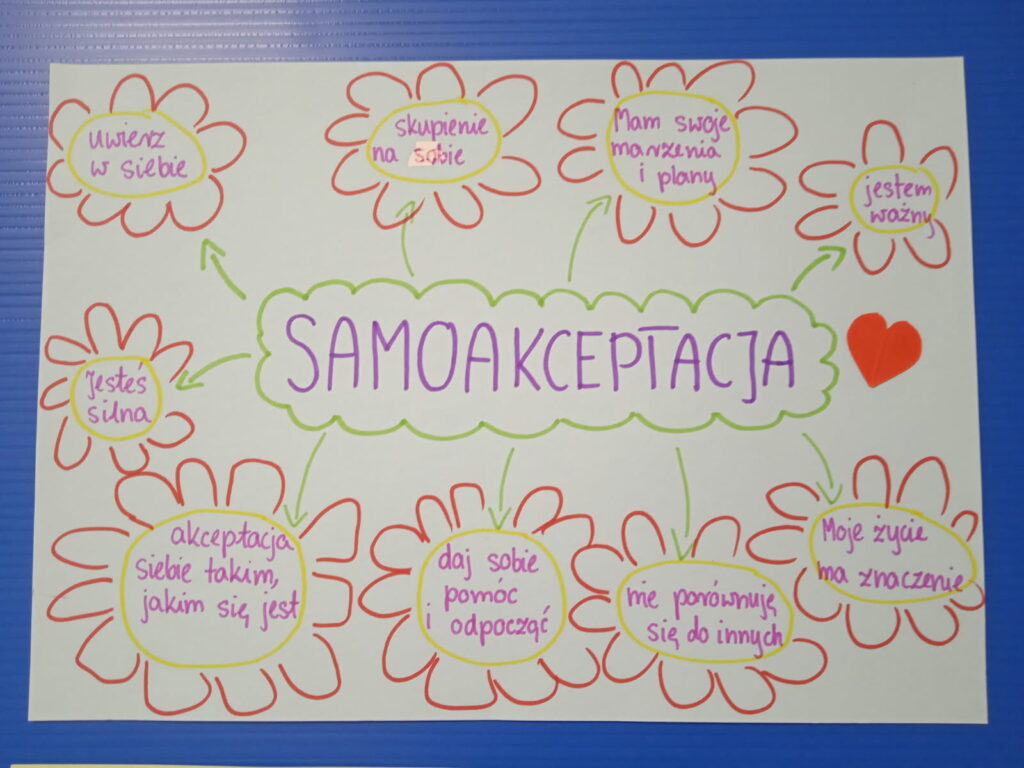 uwierz
w siebie
skupienie
na sobie
Mam swoje
marzenia
i plany
jestem
ważny
SAMOAKCEPTACJA
Jesteś
silna
akceptacja
siebie takim,
jakim się jest
daj sobie
pomóc
i odpocząć
nie porównuję
się do innych
Moje życie
ma znaczenie